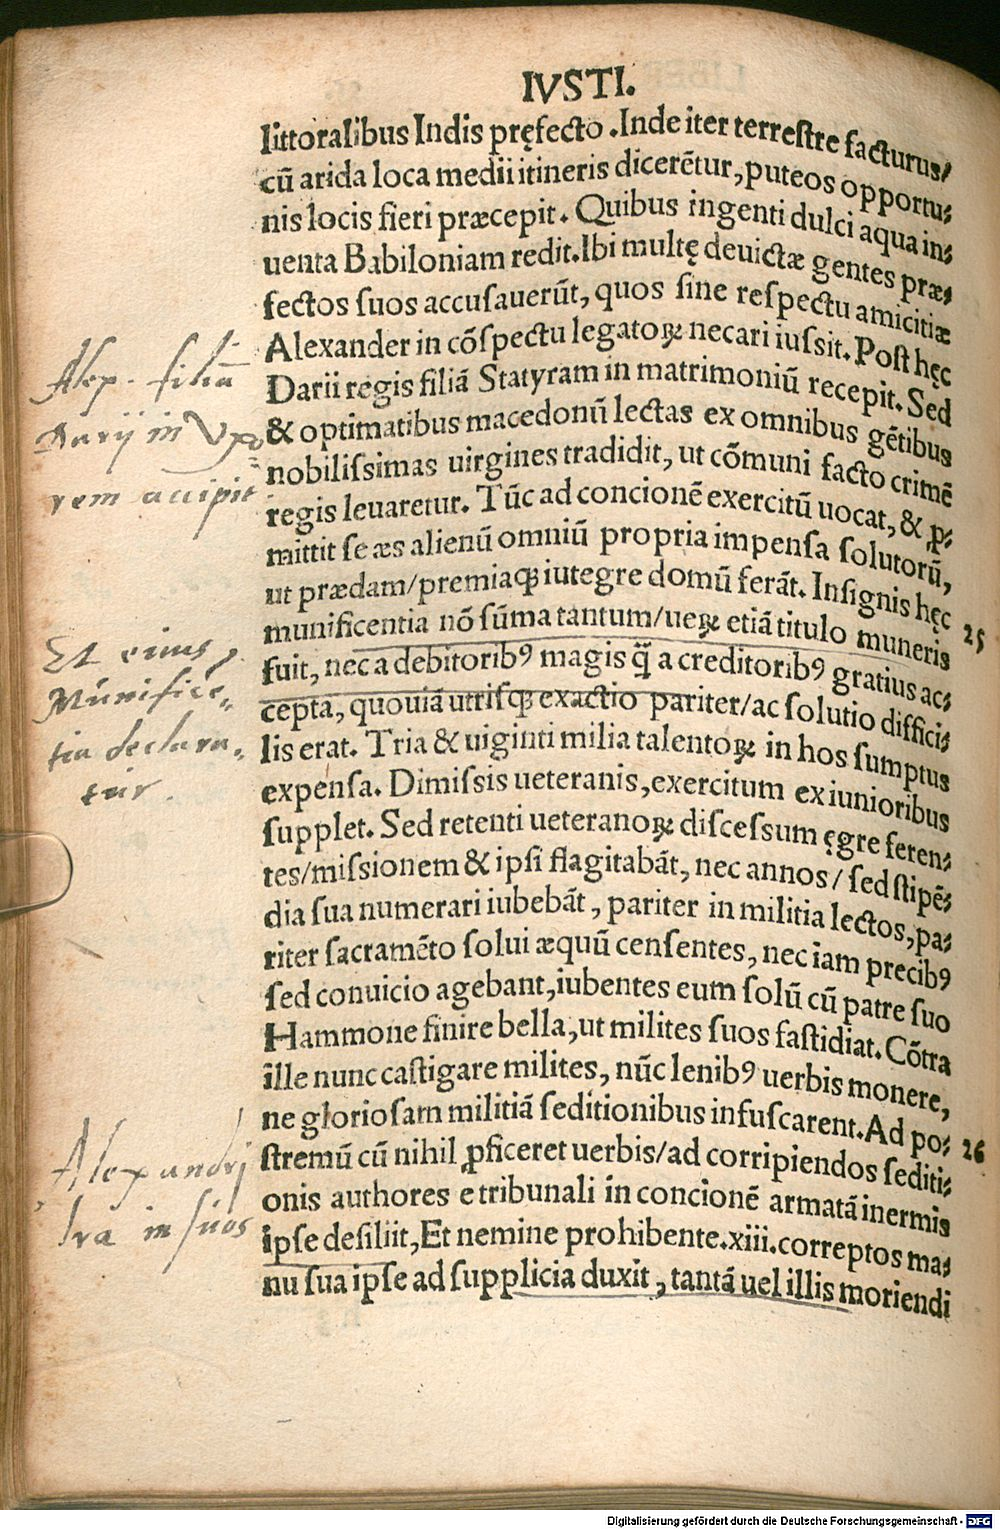 IVSTI.
littoralibus Indis pręfecto .Inde iter terrestre facturus/
cū arida loca medii itineris dicerētur,puteos opportu⸗
nis locis fieri præcepit. Quibus ingenti dulci aqua in⸗
uenta Babiloniam redit.Ibi multę deuictæ gentes præ⸗
fectos suos accusauerūt, quos sine respectu amicitiæ
Alexander in cōspectu legatoꝝ necari iussit. Post hęc
Darii regis filiā Statyram in matrimoniū recepit. Sed
& optimatibus macedonū lectas ex omnibus gētibus
nobilissimas uirgines tradidit, ut cōmuni facto crimē
regis leuaretur. Tūc ad concionē exercitū uocat, & ꝓ⸗
mittit se æs alienū omniū propria impensa solutorū,
ut prædam/premiaqꝫ iutegre domū ferāt. Insignis hęc
munificentia nō sūma tantum/ueꝝ etiā titulo muneris
25
fuit, nec a debitoribꝰ magis q̄ a creditoribꝰ gratius ac⸗
cepta, quouiā utrisqꝫ exactio pariter/ac solutio diffici⸗
lis erat. Tria & uiginti milia talentoꝝ in hos sumptus
expensa. Dimissis ueteranis,exercitum ex iunioribus
supplet. Sed retenti ueteranoꝝ discessum ęgre feren⸗
tes/missionem & ipsi flagitabāt, nec annos/ sed stipē⸗
dia sua numerari iubebāt, pariter in militia lectos,pa⸗
riter sacramēto solui æquū censentes, nec iam precibꝰ
sed conuicio agebant,iubentes eum solū cū patre suo
Hammone finire bella,ut milites suos fastidiat. Cōtra
ille nunc castigare milites, nūc lenibꝰ uerbis monere,
ne gloriosam militiā seditionibus infuscarent.Ad po⸗
26
stremū cū nihil ꝓficeret uerbis/ad corripiendos sediti⸗
onis authores e tribunali in concionē armatā inermis
ipse desiliit, Et nemine prohibente.xiii.correptos ma⸗
nu sua ipse ad supplicia duxit, tantā uel illis moriendi
Alex. filiā
Darij in Vxo
rem accipit
Et eius
Munifice⸗
tia declara⸗
tur.
Alexandri
Ira in suos
Digitalisierung gefördert durch die Deutsche Forschungsgemeinschaft - DFG